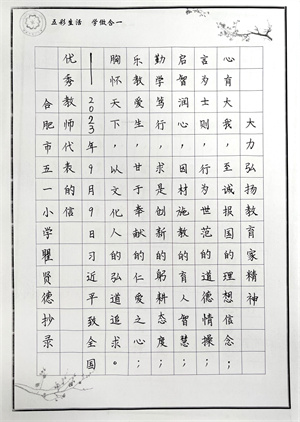 五彩生活 学做合一
大力弘扬教育家精神
心有大我、至诚报国的理想信念;
言为士则、行为世范的道德情操;
启智润心、因材施教的育人智慧;
勤学笃行、求是创新的躬耕态度;
乐教爱生、甘于奉献的仁爱之心;
胸怀天下、以文化人的弘道追求。
—2023年9月9日习近平致全国
优秀教师代表的信
合肥市五一小学瞿贤德抄录